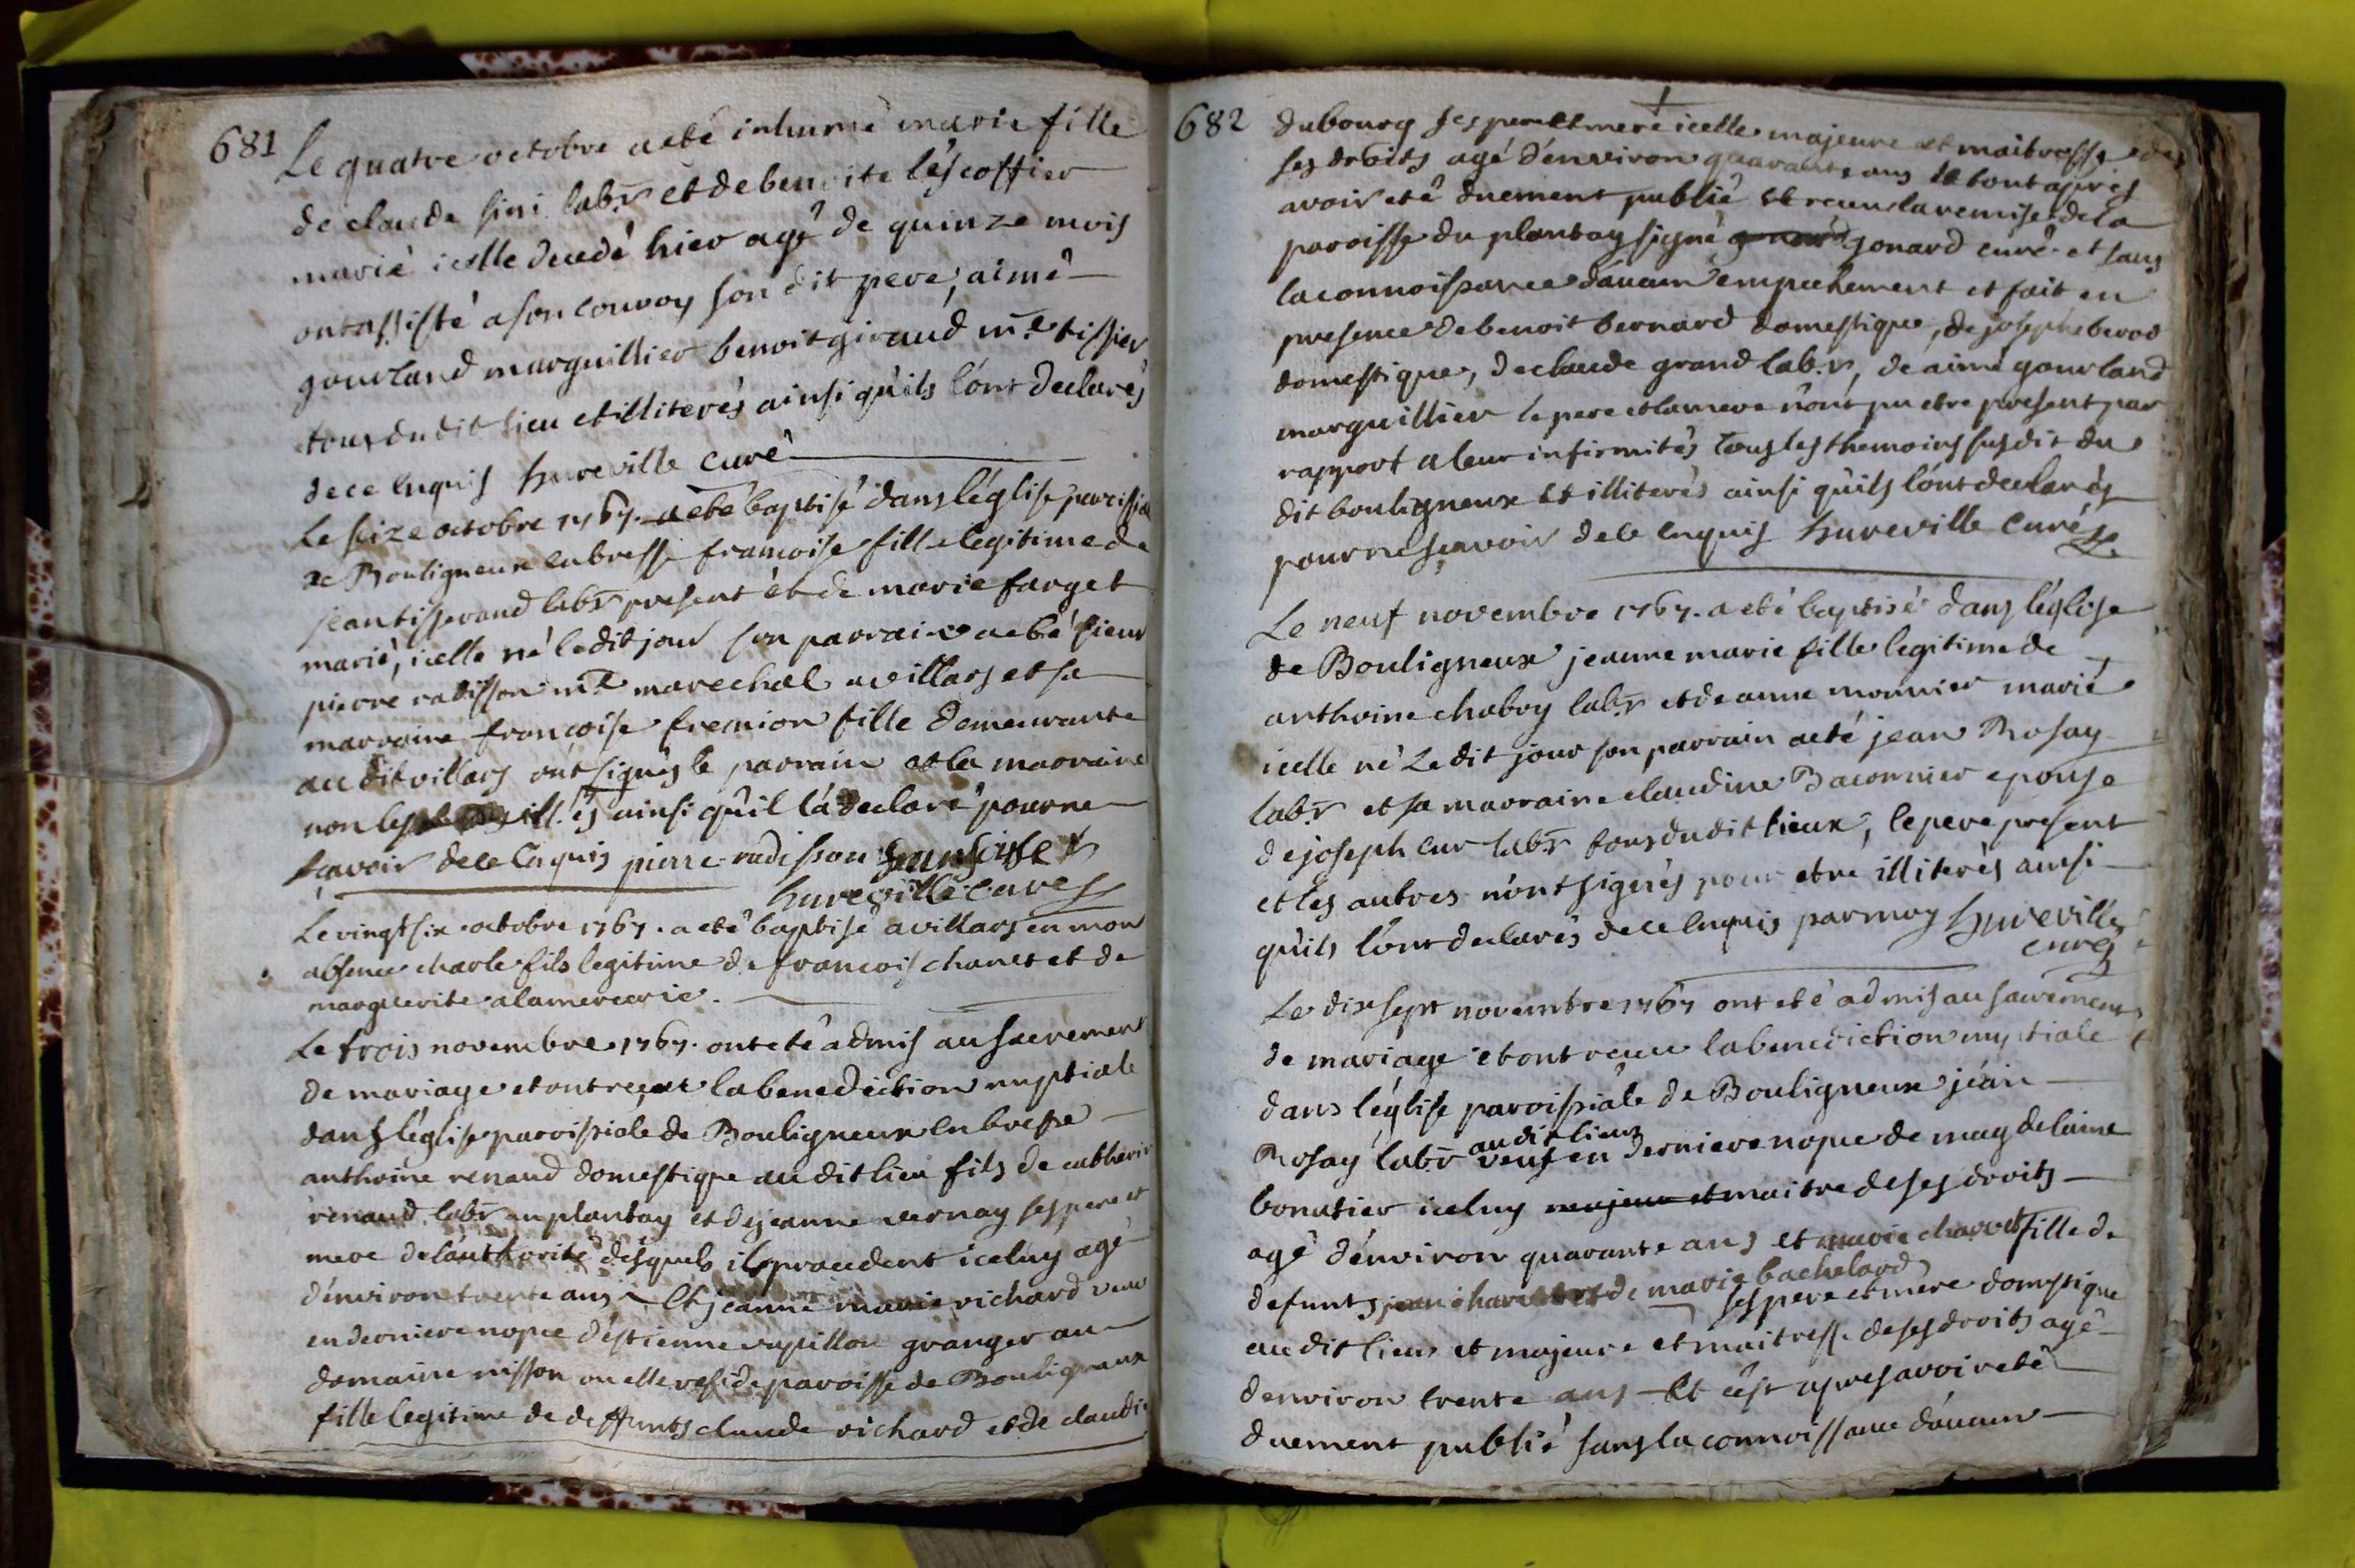 681
Le quatre octobre a eté inhumé marie fille
de claude sini lab.r et de benoite léscoffier
marié icelle decedé hier agé de quinze mois
ont assisté a son convoy son dit pere, aimé
gourland marguillier benoit giraud m.e tissier
tous du dit lieu et illiterés ainsi qu'ils l'ont declarés
de ce enquis hureville curé
Le seize octobre 1767. a eté baptisé dans l'église paroissia
de Bouligneux en bresse francoise fille legitime de
jean tisserand lab.r present et de marie farget
marié, icelle né le dit jour son parrain a eté sieur
pierre radisson m.e marechal a villars et sa
marraine francoise fremion fille demeurante
au dit villars ont signés le parrain et la marraine
non les illi.és ainsi qu'il l'a declaré pour ne
sçavoir de ce enquis pierre radisson
hureville curé
Le vingt six octobre 1767. a eté baptisé a villars en mon
absence charle fils legitime de francois chanet et de
marguerite alamercerie.
Le trois novembre 1767. ont eté admis au sacrement
de mariage et ont reçue la benediction nuptiale
dans l'église paroissiale de Bouligneux en bresse
anthoine renaud domestique au dit lieu fils de catherin
renaud lab.r au plantay et de jeanne vernay ses pere et
mere de l'authorité desquels il procedent iceluy agé
d'environ trente ans et jeanne marie richard veuve
en derniere nopce d'estienne papillon granger au
domaine nisson ou elle reside paroisse de Bouligneux
fille legitime de deffunts claude richard et de claudi
682
dubourg ses pere et mere icelle majeure et maitresse de
ses droits agé d'environ quarante ans le tout aprés
avoir eté duement publié et receu la remise de la
paroisse du plantay signé gonard curé et sans
la connoissance d'aucun empechement et fait en
presence de benoit bernard domestique, de joseph berod
domestique, de claude grand lab.r, de aimé gourland
marguillier le pere et la mere n'ont pu etre present par
rapport a leur infirmités tous les themoins susdit du
dit bouligneux et illiterés ainsi qu'ils l'ont declarés
pour ne sçavoir de ce enquis hureville curé
Le neuf novembre 1767. a eté baptisé dans l'église
de Bouligneux jeanne marie fille legitime de
anthoine chabry lab.r et de anne monnier marié
icelle né Le dit jour son parrain a eté jean Rosay
lab.r et sa marraine claudine Baconnier epouse
de joseph cur lab.r tous du dit lieux, le pere present
et les autres n'ont signés pour etre illiterés ainsi
qu'ils l'ont declarés de ce enquis par moy hureville
curé
Le dix sept novembre 1767 ont eté admis au sacrement
de mariage et ont reçue la benediction nuptiale
dans l'église paroissiale de Bouligneux jean
Rosay lab.r au dit lieux veuf en derniere nopce de magdelaine
bonatier iceluy majeur et maitre de ses droits
agé d'environ quarante ans et marie charvet fille de
defunts jean charvet et de marie bachelard
ses pere et mere domestique
au dit lieux et majeure et maitresse de ses droits agé
d'environ trente ans et c'est apres avoir eté
duement publié sans la connoissance d'aucun